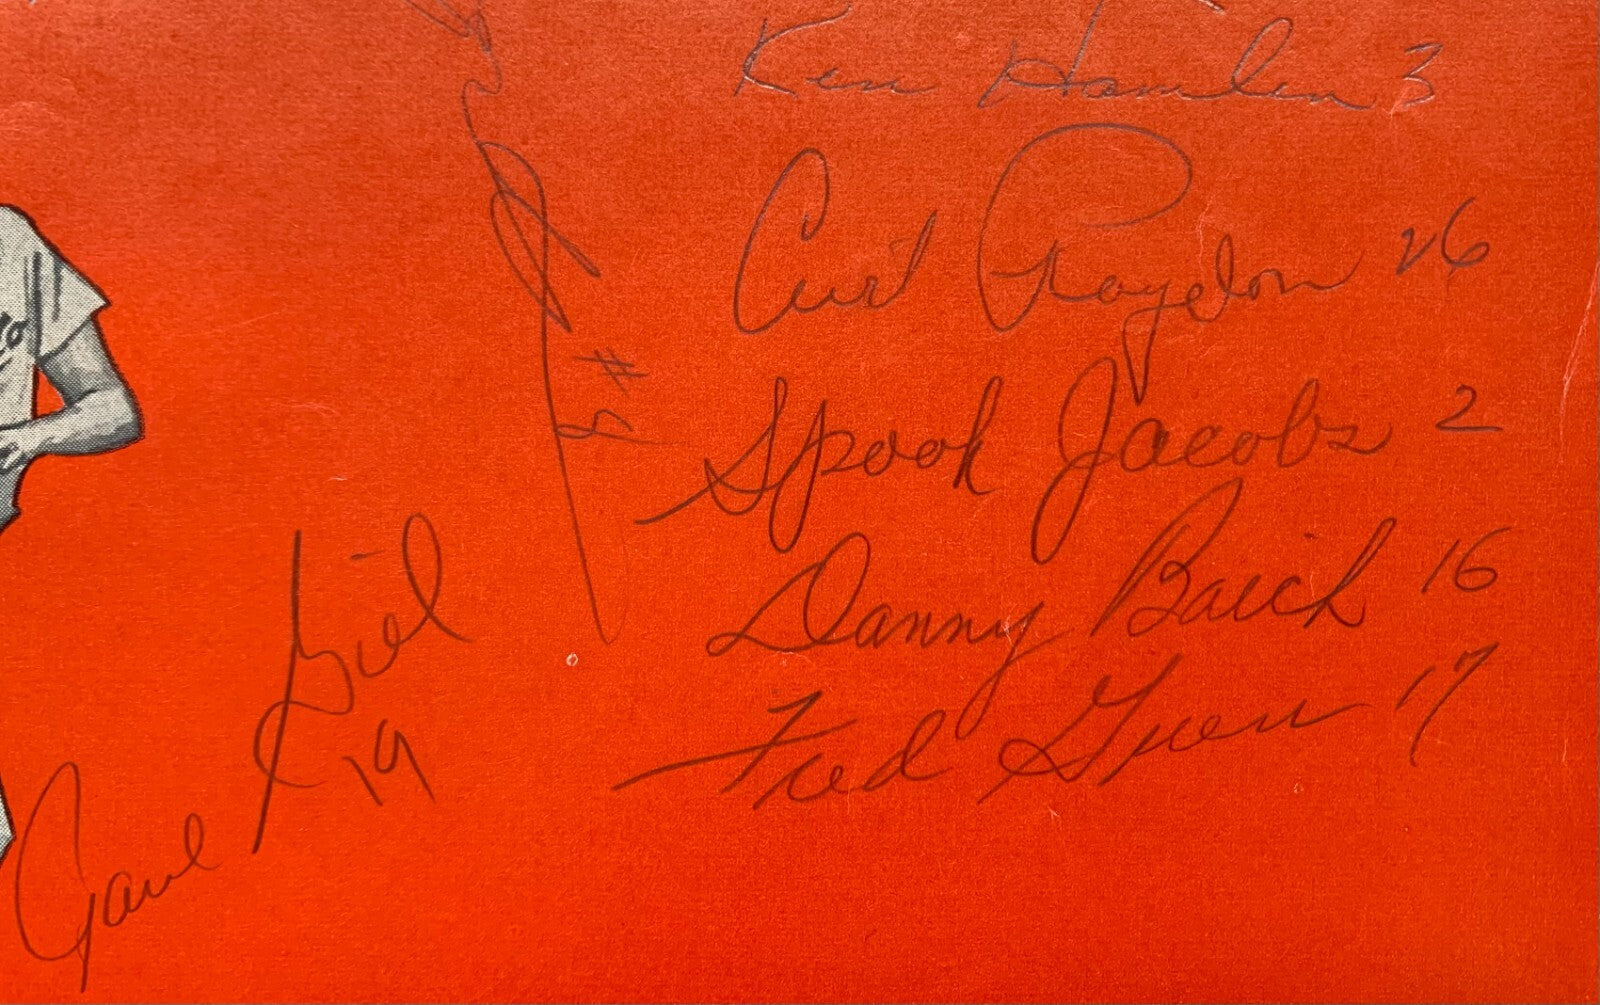 Ken Hamlin 3
Curt Raydon 26
Spook Jacobs 2
Danny Baich 16
Fred Green 17
Paul Giel
19
#5